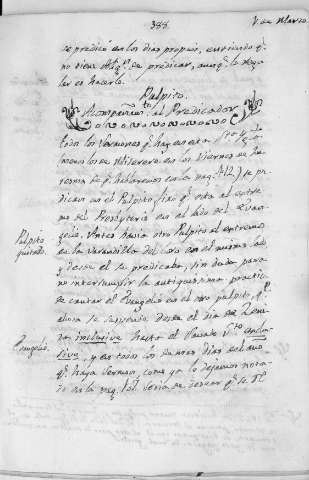 388.
V. de Marzo
se predicó en los dias propios, advirtiendo q.e
no tiene oblig.n de predicar, aunq.e lo regu-
lar es hacerlo.
Pulpito.
Acompañam.to al Predicador
todos los Sermones q.e hay en esta
menos los de Miserere en los Viernes de Qua-
resma de q.e hablaremos en la pag. 412) se pre-
dican en el Pulpito fixo q.e está al estre-
mo del Presbyterio en el lado del Evan-
gelio. Antes havia otro Pulpito al extremo
de la varandilla del Coro en el mismo lado
y desde el se predicaba, sin duda para
no interrumpir la antiquissima practica
de cantar el Evangelio en el otro pulpito, q.e
ahora se suspende desde el dia de Zeni-
za inclusive hasta el Sabado S.to exclu-
sive, y en todos los demas dias del año
q.e haya Sermon, como ya lo dejamos nota-
do en la pag. Seria de desear q.e
Pulpito
quitado.
Evangelio.